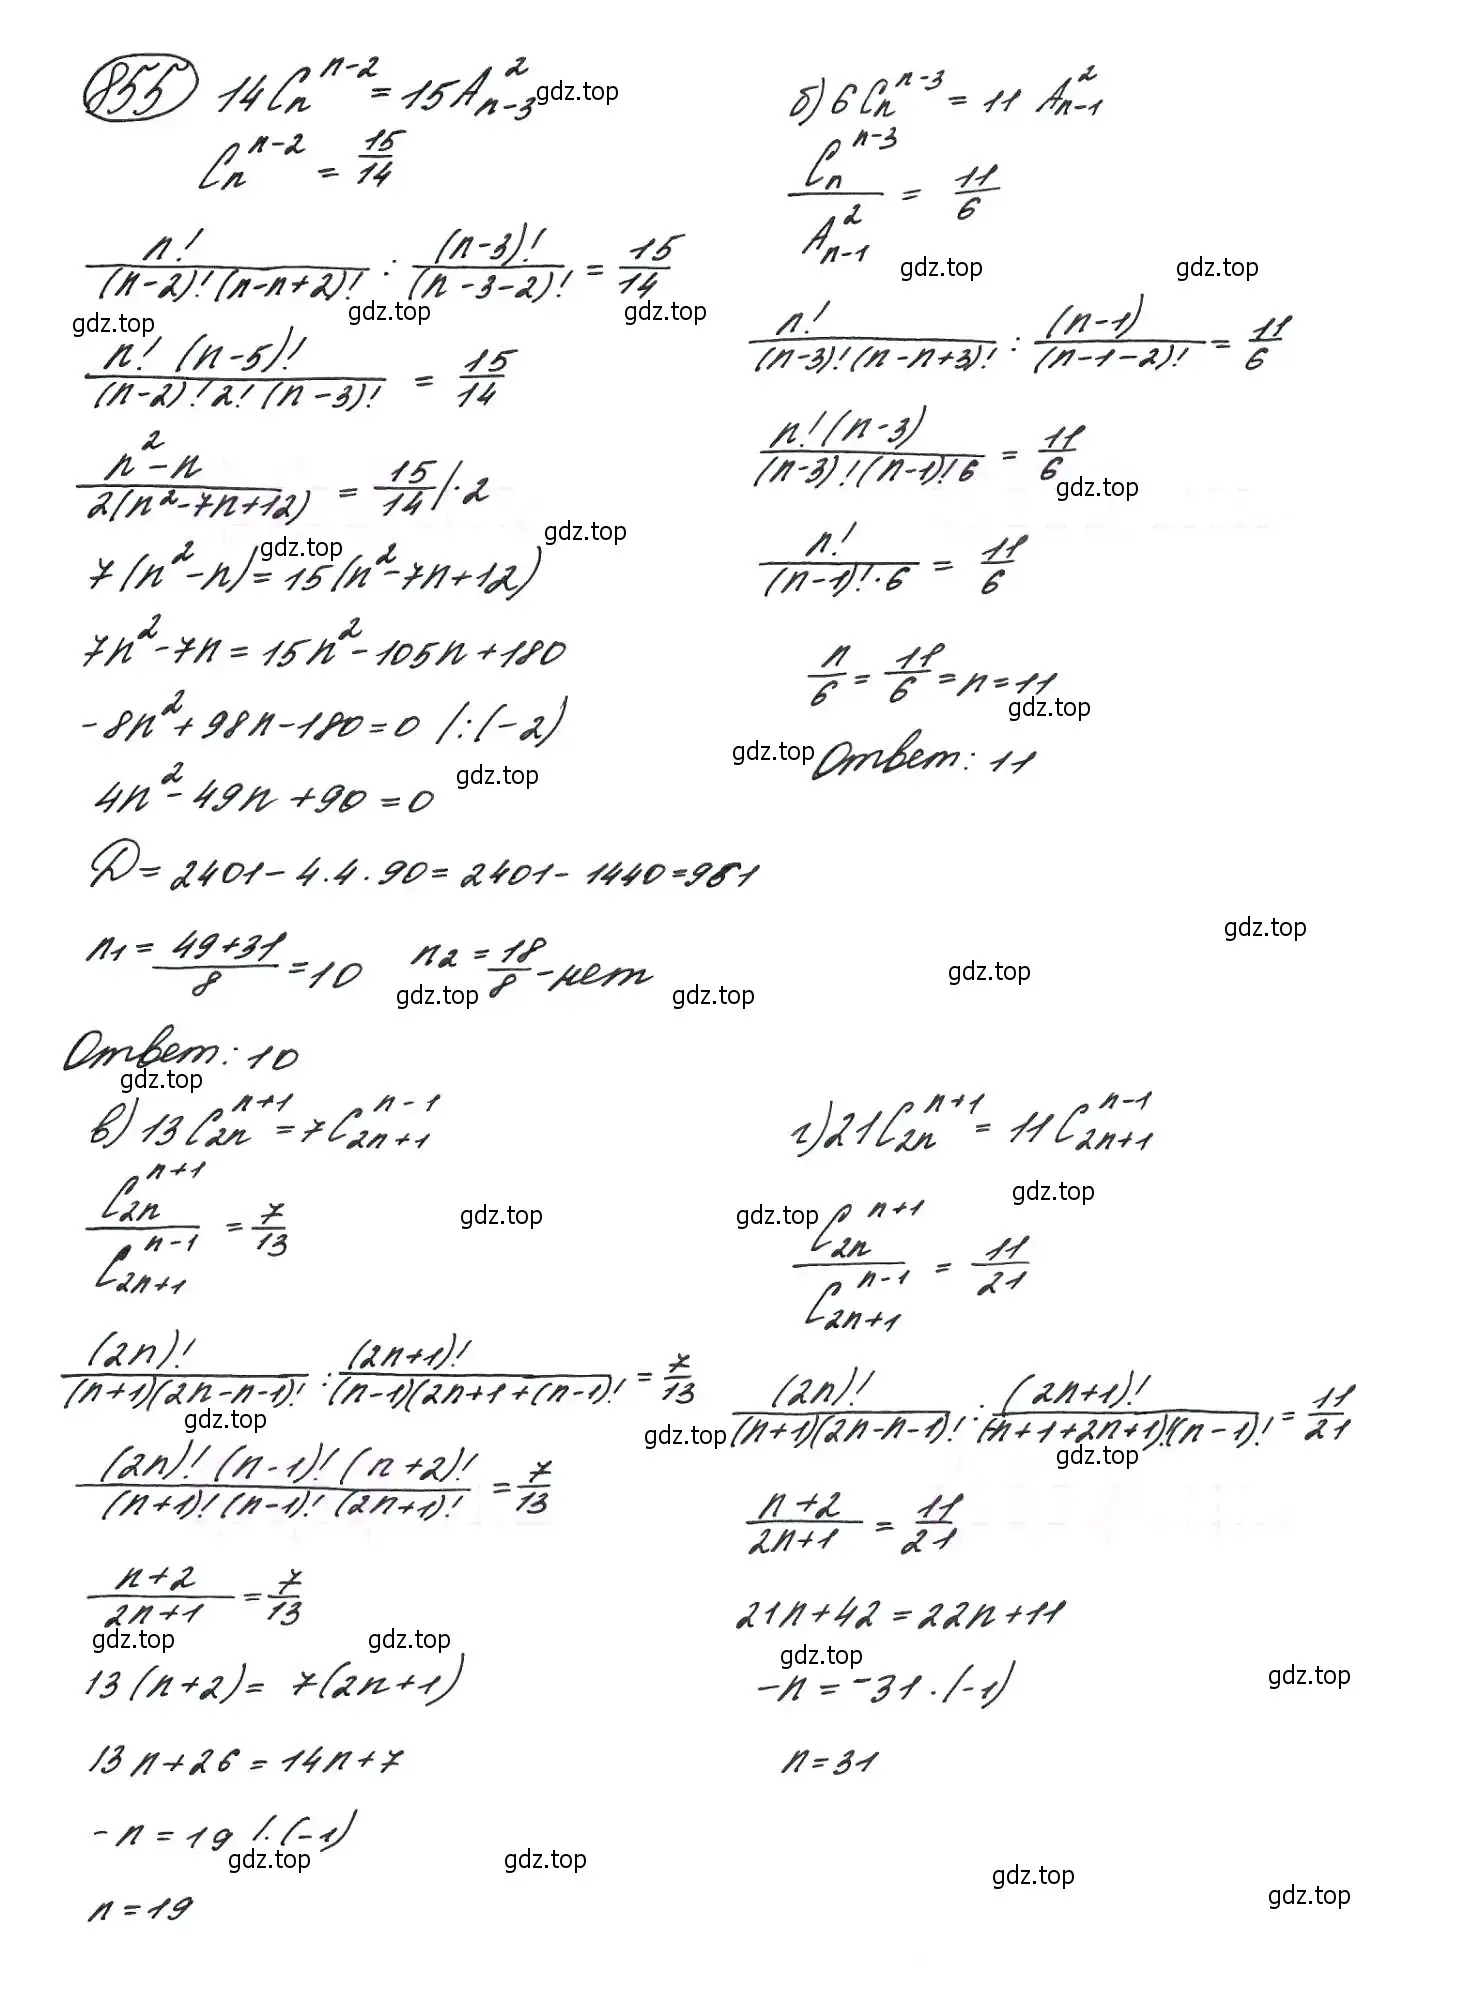 855 14C_n^{n-2} = 15A_{n-3}^2 gdz.top
C_n^{n-2} = 15/14
n!/((n-2)!(n-n+2)!) : (n-3)!/((n-3-2)!) = 15/14
gdz.top gdz.top gdz.top
n!(n-5)!/((n-2)!2!(n-3)!) = 15/14
(n^2-n)/(2(n^2-7n+12)) = 15/14 |·2
gdz.top gdz.top
7(n^2-n) = 15(n^2-7n+12)
7n^2-7n = 15n^2-105n+180
-8n^2+98n-180=0 |:(-2)
gdz.top
4n^2-49n+90=0
D=2401-4.4.90=2401-1440=961
n1 = (49+31)/8 = 10 n2 = 18/8 - нет
gdz.top gdz.top
Ответ: 10
gdz.top
б) 6C_n^{n-3} = 11 A_{n-1}^2
C_n^{n-3}/A_{n-1}^2 = 11/6
gdz.top gdz.top
n!/((n-3)!(n-n+3)!) : (n-1)/((n-1-2)!) = 11/6
n!(n-3)/((n-3)!(n-1)!6) = 11/6
gdz.top
n!/((n-1)!·6) = 11/6
n/6 = 11/6 = n=11
gdz.top
gdz.top Ответ: 11
gdz.top
gdz.top
в) 13C_{2n}^{n+1} = 7C_{2n+1}^{n-1}
C_{2n}^{n+1}/C_{2n+1}^{n-1} = 7/13
gdz.top
(2n)!/((n+1)(2n-n-1)!) : (2n+1)!/((n-1)(2n+1+(n-1)!) = 7/13
gdz.top gdz.top
(2n)!(n-1)!(n+2)!/((n+1)!(n-1)!(2n+1)!) = 7/13
(n+2)/(2n+1) = 7/13
gdz.top gdz.top
13(n+2)= 7(2n+1)
13n+26=14n+7
-n=19 /.(-1)
gdz.top gdz.top
n=19
г) 21C_{2n}^{n+1} = 11C_{2n+1}^{n-1}
gdz.top
gdz.top
C_{2n}^{n+1}/C_{2n+1}^{n-1} = 11/21
(2n)!/((n+1)(2n-n-1)!) : (2n+1)!/((-n+1+2n+1)!(n-1)!) = 11/21
gdz.top
(n+2)/(2n+1) = 11/21
21n+42=22n+11
gdz.top gdz.top
-n=-31.(-1)
n=31
gdz.top
gdz.top